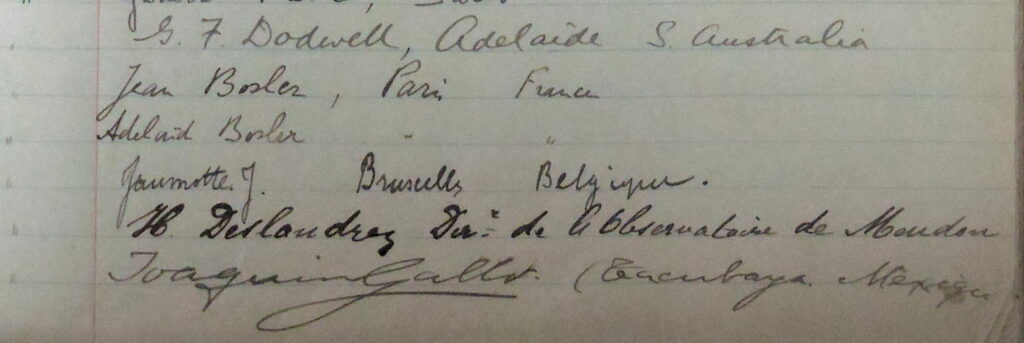 G. F. Dodwell, Adelaide S. Australia
Jean Bosler, Paris France
Adelaïd Bosler " "
Jaumotte. J. Bruxelles Belgique.
H. Deslandres Dirr de l'Observatoire de Meudon
Joaquin Gallo. (Tacubaya. Mexico